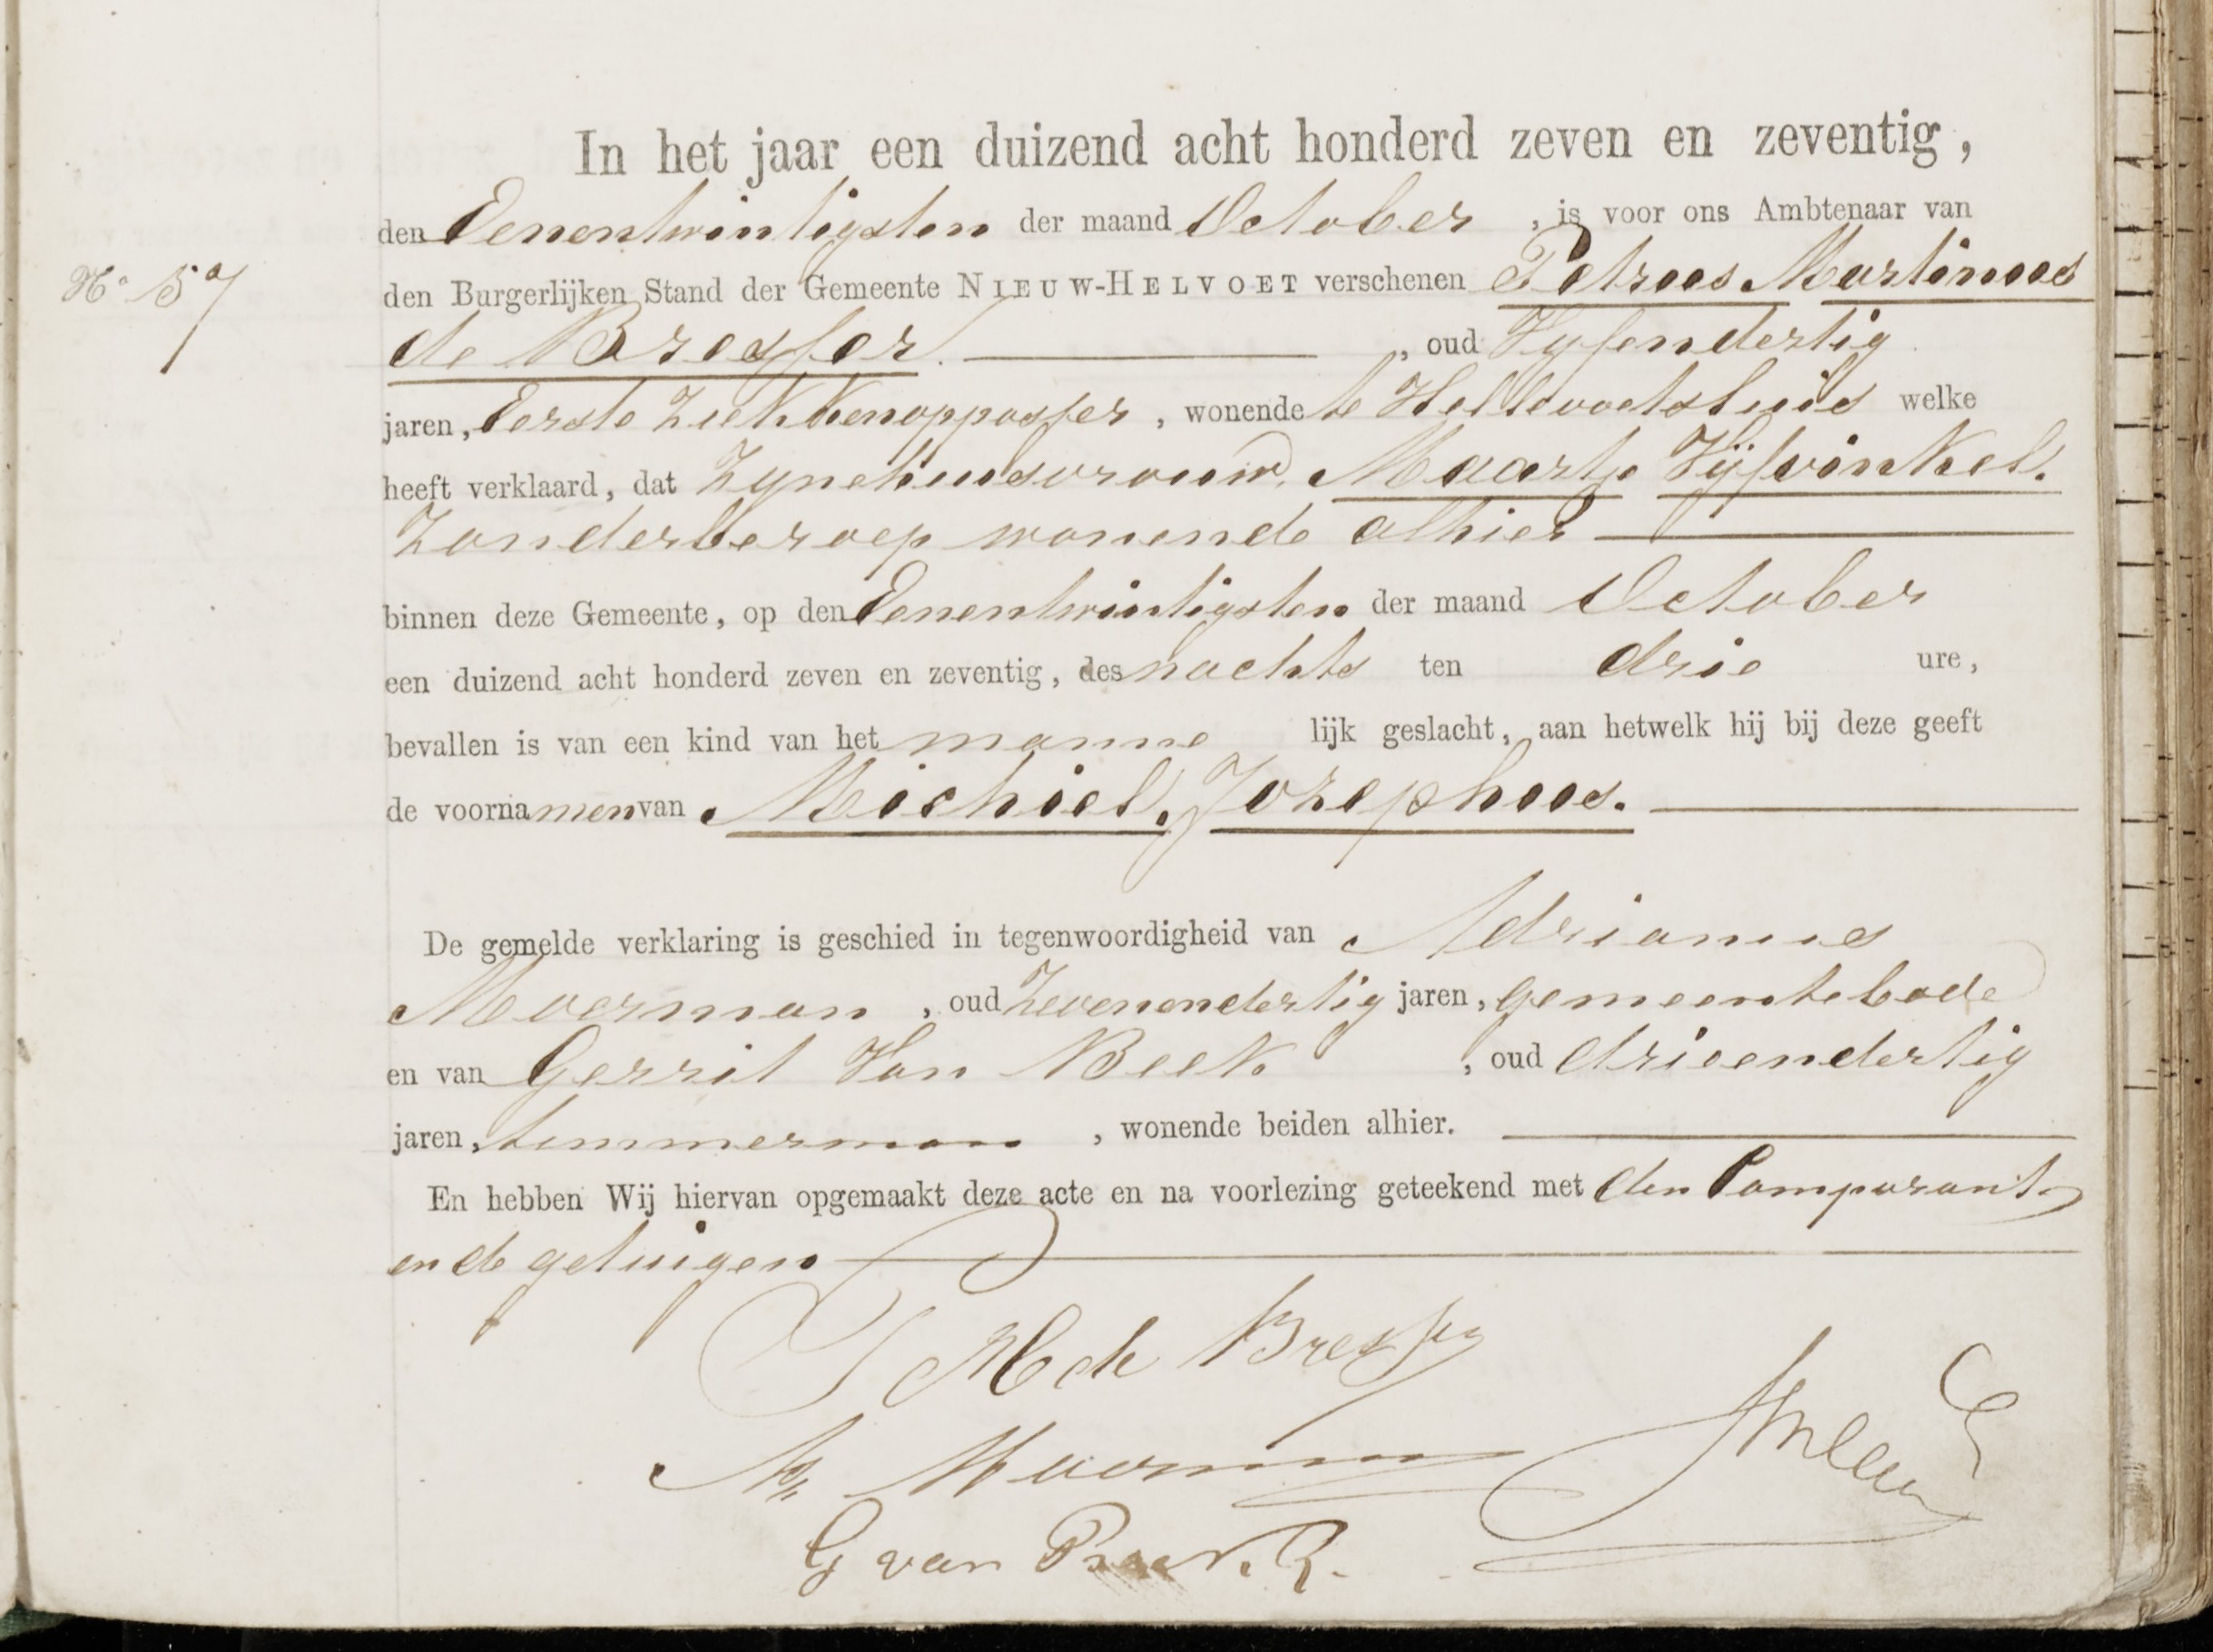 In het jaar een duizend acht honderd zeven en zeventig,
den Eenentwintigsten der maand October, is voor ons Ambtenaar van
No 57
den Burgerlijken Stand der Gemeente NIEUW-HELVOET verschenen Petroos Martinoos
de Bresser, oud Vyfendertig
jaren, Eerste Ziekkenoppasser, wonende te Hellevoetsluis welke
heeft verklaard, dat Zynehuisvrouw, Maartje Vijfvinkel.
Zonderberoep wonende alhier
binnen deze Gemeente, op den Eenentwintigsten der maand October
een duizend acht honderd zeven en zeventig, des nachts ten drie ure,
bevallen is van een kind van het manne lijk geslacht, aan hetwelk hij bij deze geeft
de voornamen van Michiel, Jozephoos.
De gemelde verklaring is geschied in tegenwoordigheid van Adrianus
Moerman, oud Zevenendertig jaren, gemeentebode
en van Gerrit Van Beek, oud drieendertig
jaren, timmerman, wonende beiden alhier.
En hebben Wij hiervan opgemaakt deze acte en na voorlezing geteekend met den Comparant
en de getuigen
P M de Bresser
A Moerman
G van Beek